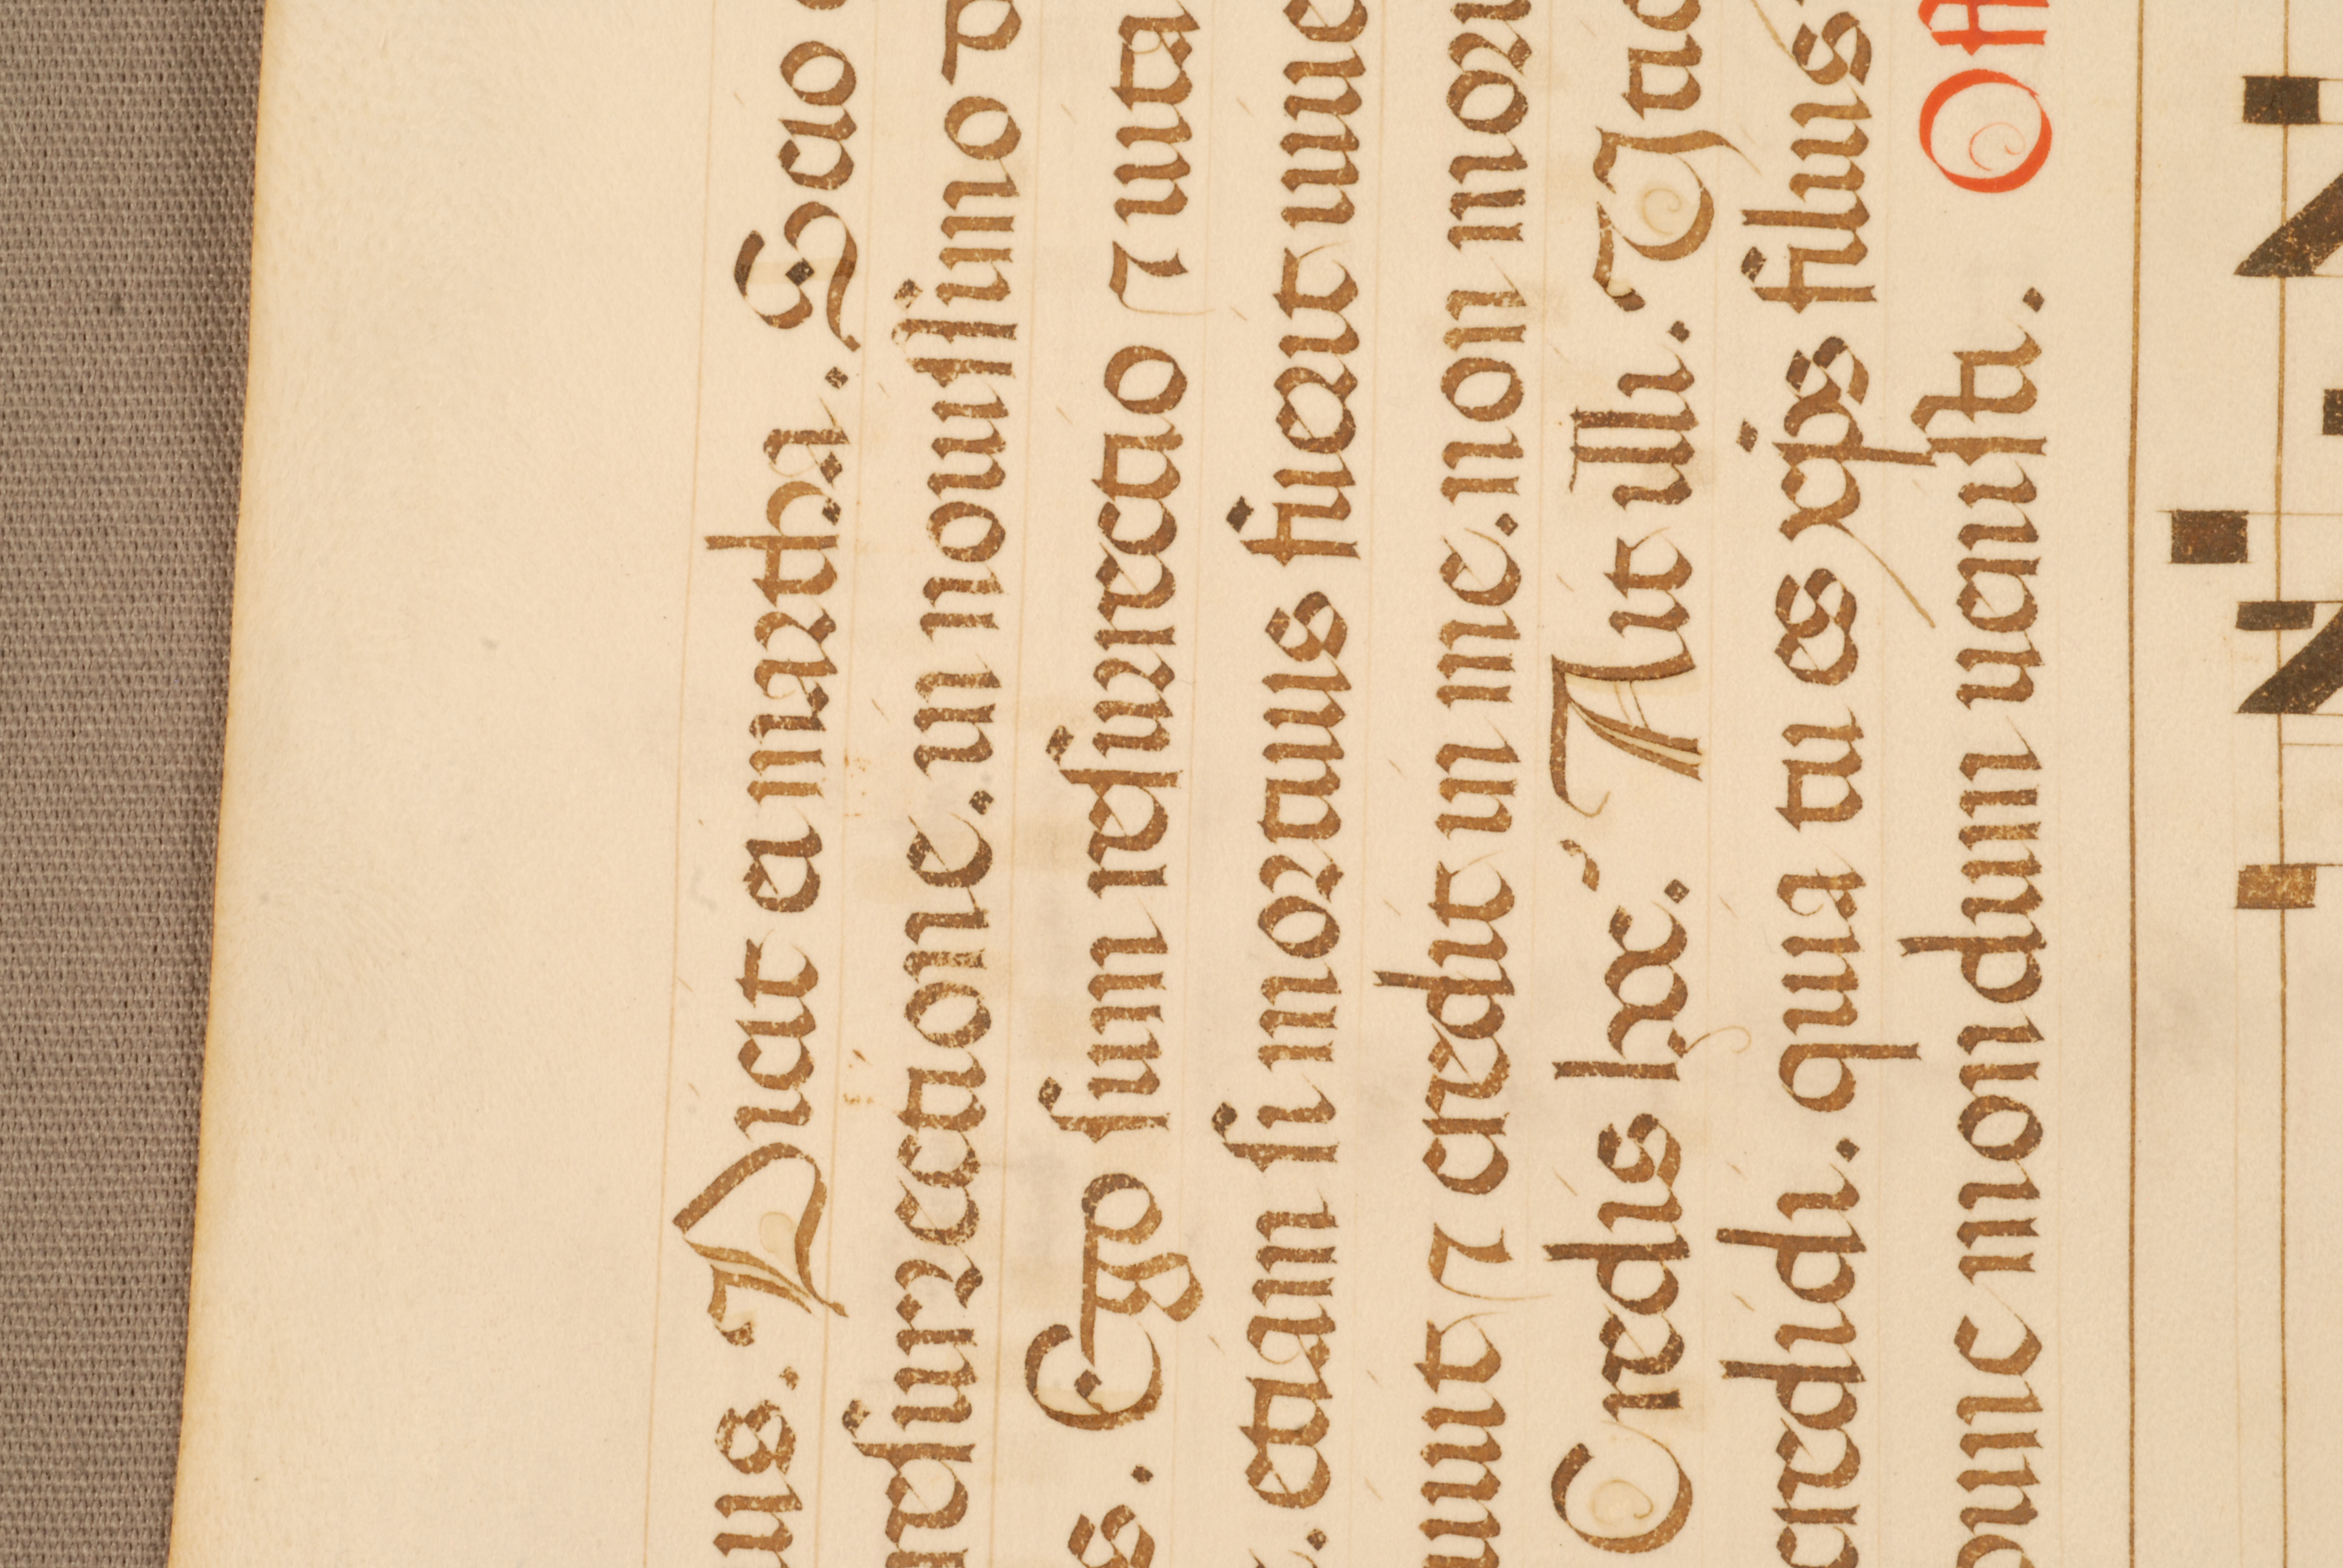 us. Dicit ei martha. Scio
resurrectione. in nouissimo
s. Ego sum resurrectio ⁊ uita
. etiam si mortuus fuerit uiue
uiuit ⁊ credit in me. non mori
Credis hoc? Ait illi. Vtiq
credidi. quia tu es xp̄s filius
hunc mundum uenisti. Off